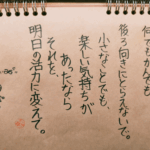 何でもかんでも
後ろ向きにとらえないで。
小さなことでも、
楽しい気持ちが
あったなら
それを、
明日の活力に変えて。